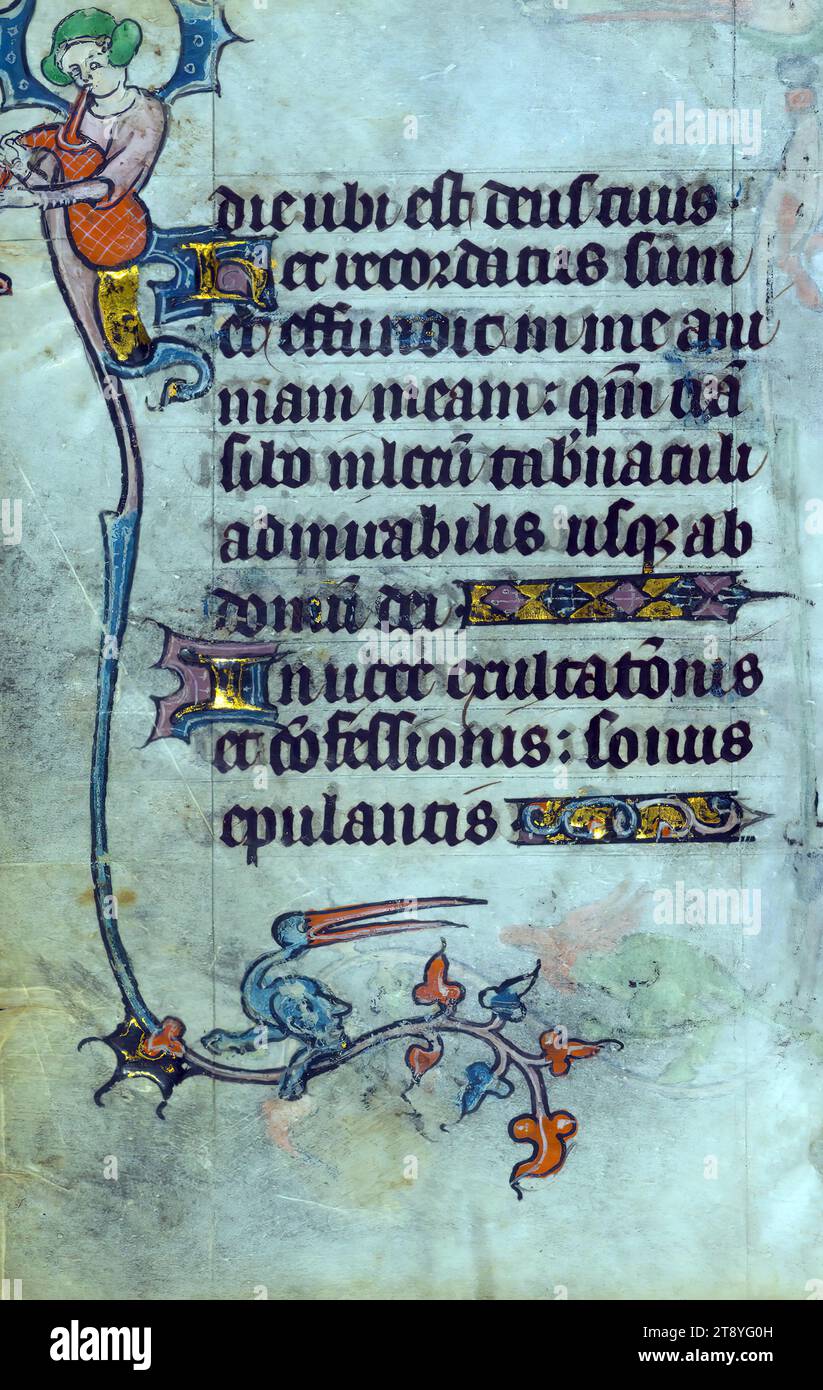 die ubi est deus tuus
Hec recordatus sum
et effundit in me ani
mam meam: qm̄ trā
sibo in locū tab'naculi
admirabilis usqꝫ ab
domū dei
In uoce exultatōnis
et cōfessionis: sonus
epulantis
alamy
alamy
alamy
Image ID: T8YG0H
www.alamy.com